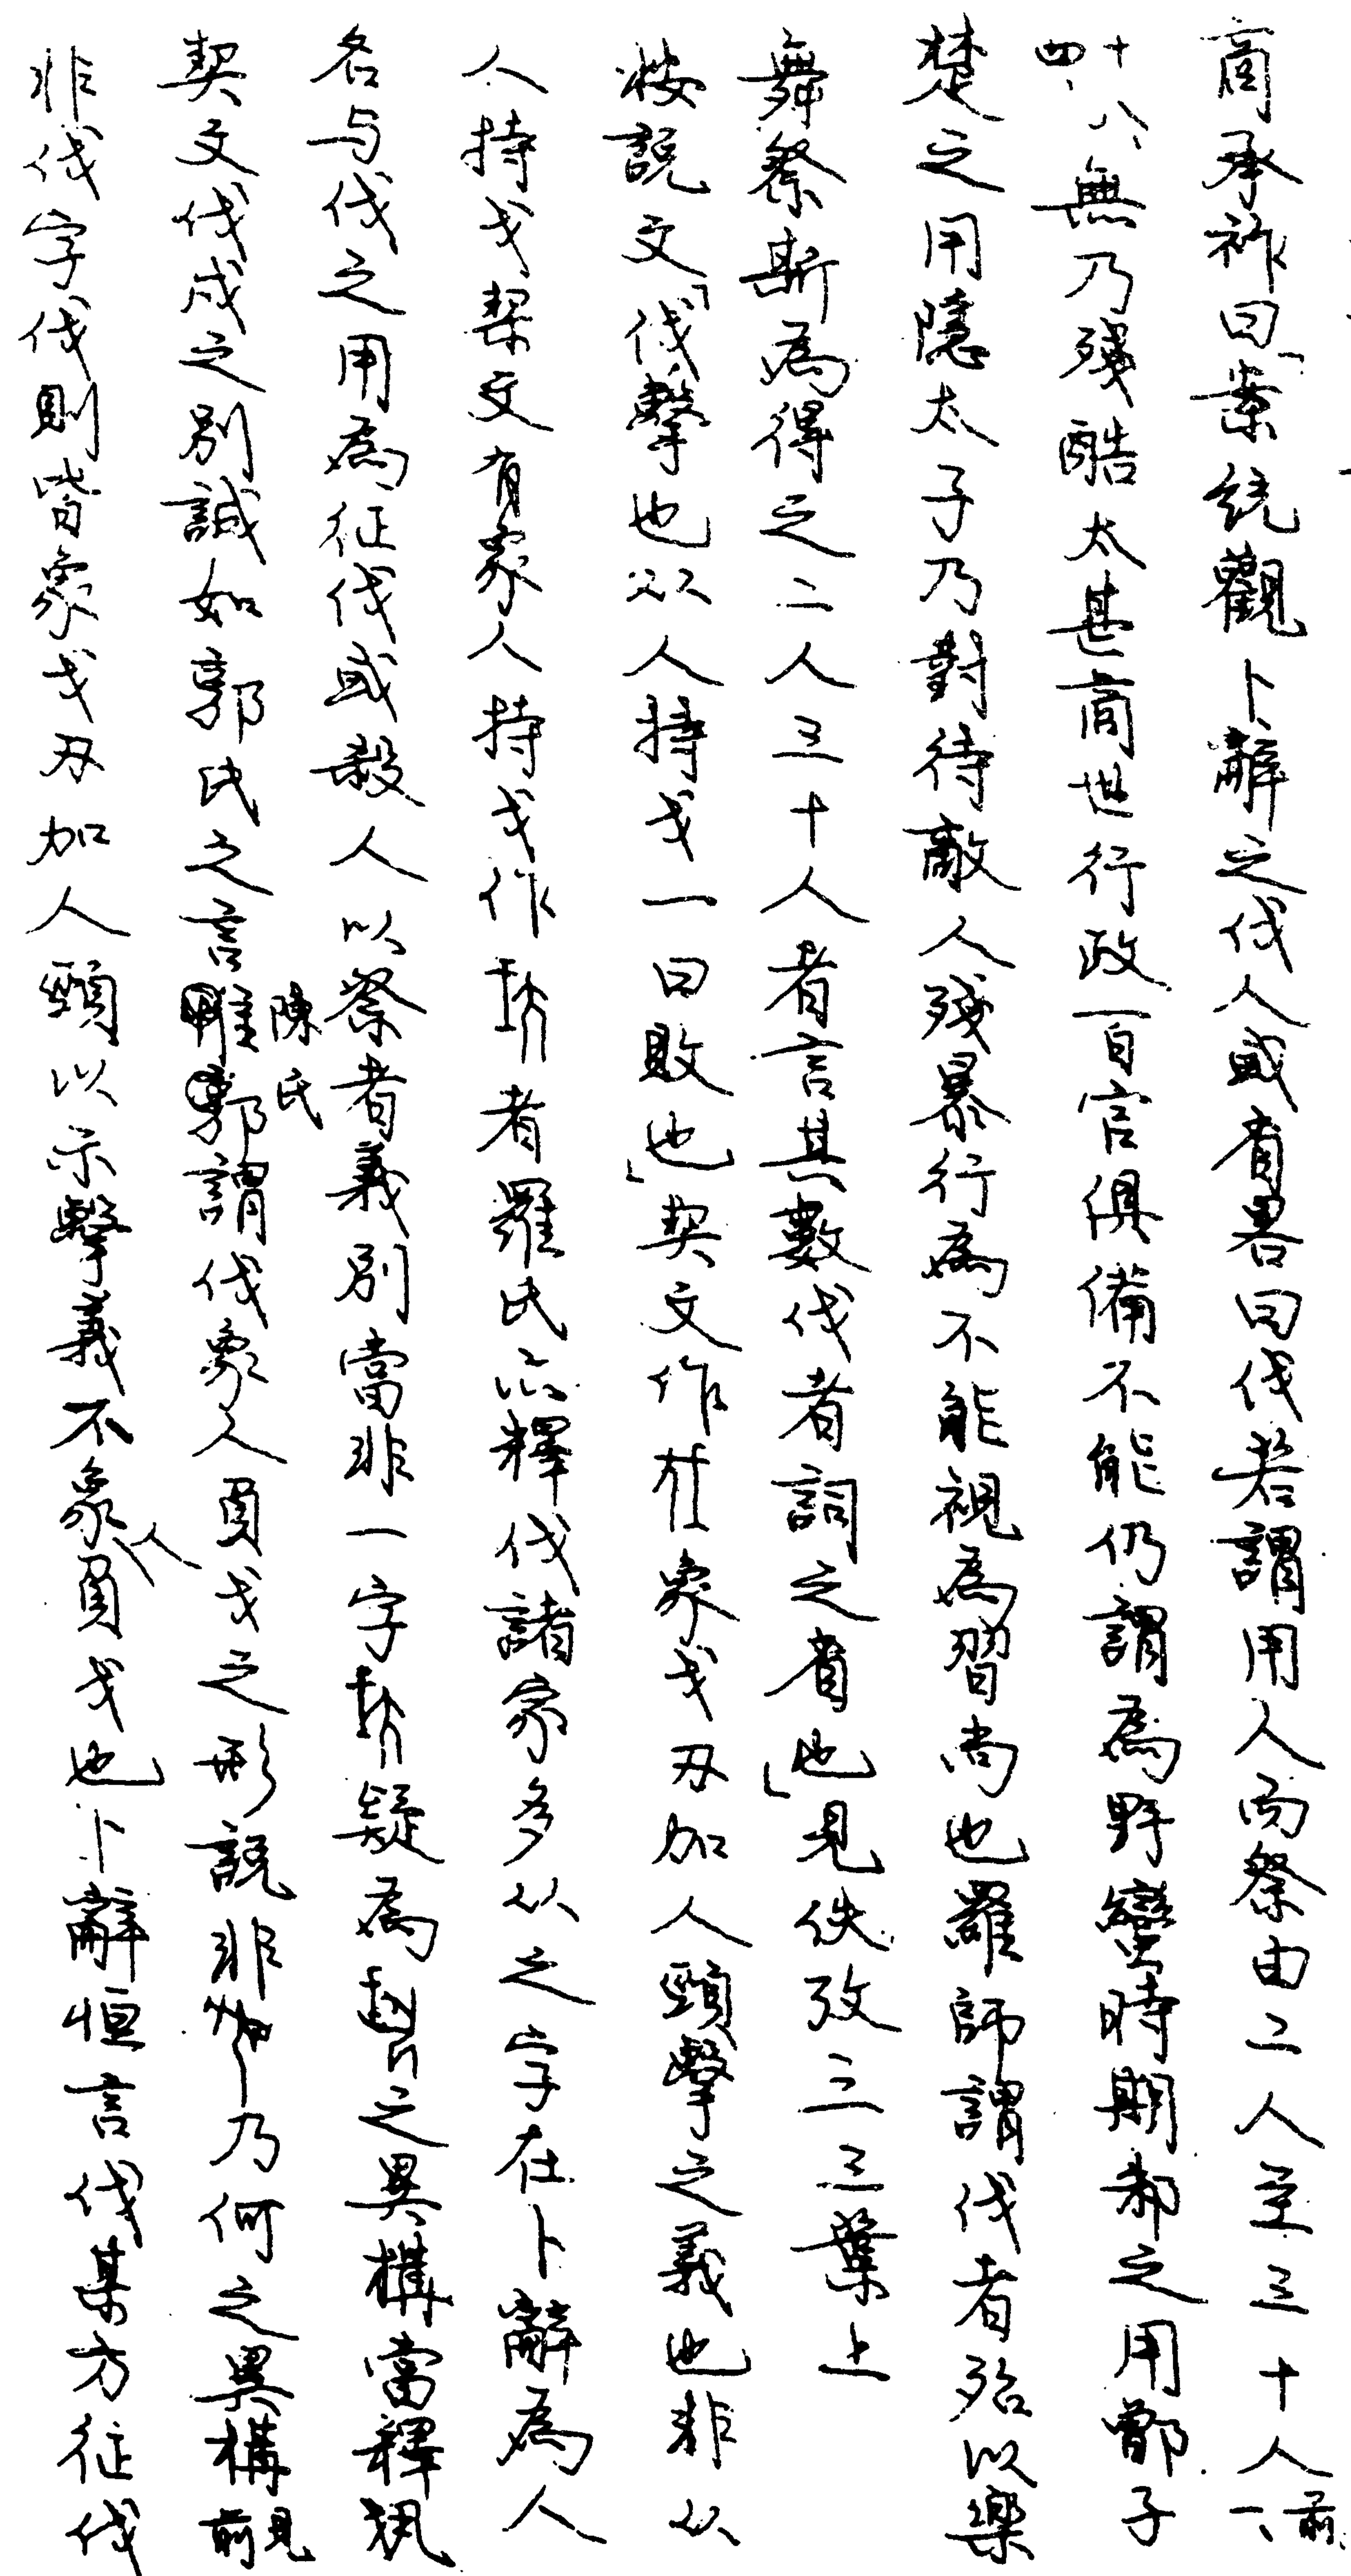 商承祚曰「業統觀卜辭之伐人或省畧曰伐若謂用人而祭由二人至三十人前、一、
十八、四、無乃殘酷太甚商世行政百官俱備不能仍謂為野蠻時期邾之用鄫子
楚之用隱太子乃對待敵人殘暴行為不能視為習尚也羅師謂伐者殆以樂
舞祭斯為得之二人三十人者言其數伐者詞之省也」見佚攷三三葉上
按說文「伐擊也从人持戈一曰敗也」契文作象戈刃加人頸擊之義也非从
人持戈契文有象人持戈作者羅氏亦釋伐諸家多从之字在卜辭為人
名与伐之用為征伐或殺人以祭者義別當非一字疑為之異構當釋𢦚
契文伐戍之別誠如郭氏之言陳氏謂伐象人負戈之形説非乃何之異構見前
非伐字伐則皆象戈刃加人頸以示擊義不象人負戈也卜辭恒言伐某方征伐